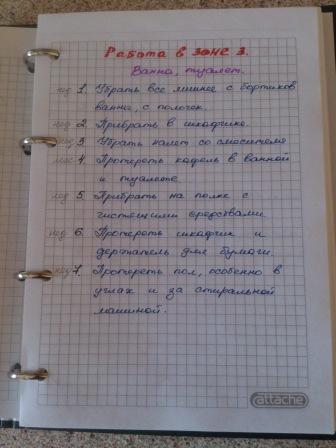 Работа в зоне 3.
Ванна, туалет.
нед 1. Убрать все лишнее с бортиков
ванны, с полочек.
нед 2. Прибрать в шкафчике.
нед 3. Убрать налет со смесителя
мес 4. Протереть кафель в ванной
и туалете
нед 5. Прибрать на полке с
чистящими средствами.
нед 6. Протереть шкафчик и
держатель для бумаги.
нед 7. Протереть пол, особенно в
углах и за стиральной
машиной.
attache